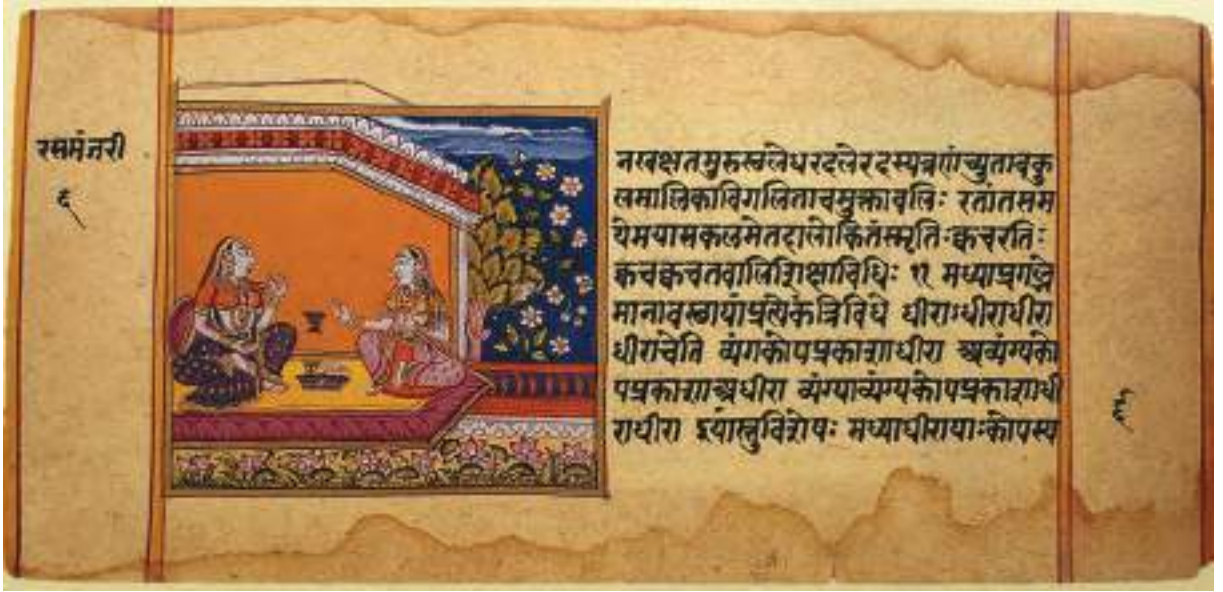 रसमंजरी
६
नखक्षतमुरुस्थलेधरदलेरदस्यव्रणंच्युताबकु
लमालिकाविगलिताचमुक्तावलिः रतांतसम
येमयासकलमेतदालोकितंस्मृतिःक्वचरतिः
क्वचक्वचतवालिशिक्षाविधिः ११ मध्याप्रगल्भे
मानावस्थायांप्रत्येकंत्रिविधे धीराऽधीराधीरा
धीराचेति व्यंगकोपप्रकाशाधीरा अव्यंग्यको
पप्रकाशाअधीरा व्यंग्याव्यंग्यकोपप्रकाशाधी
राधीरा इयांस्तुविशेषः मध्याधीरायाःकोपस्य